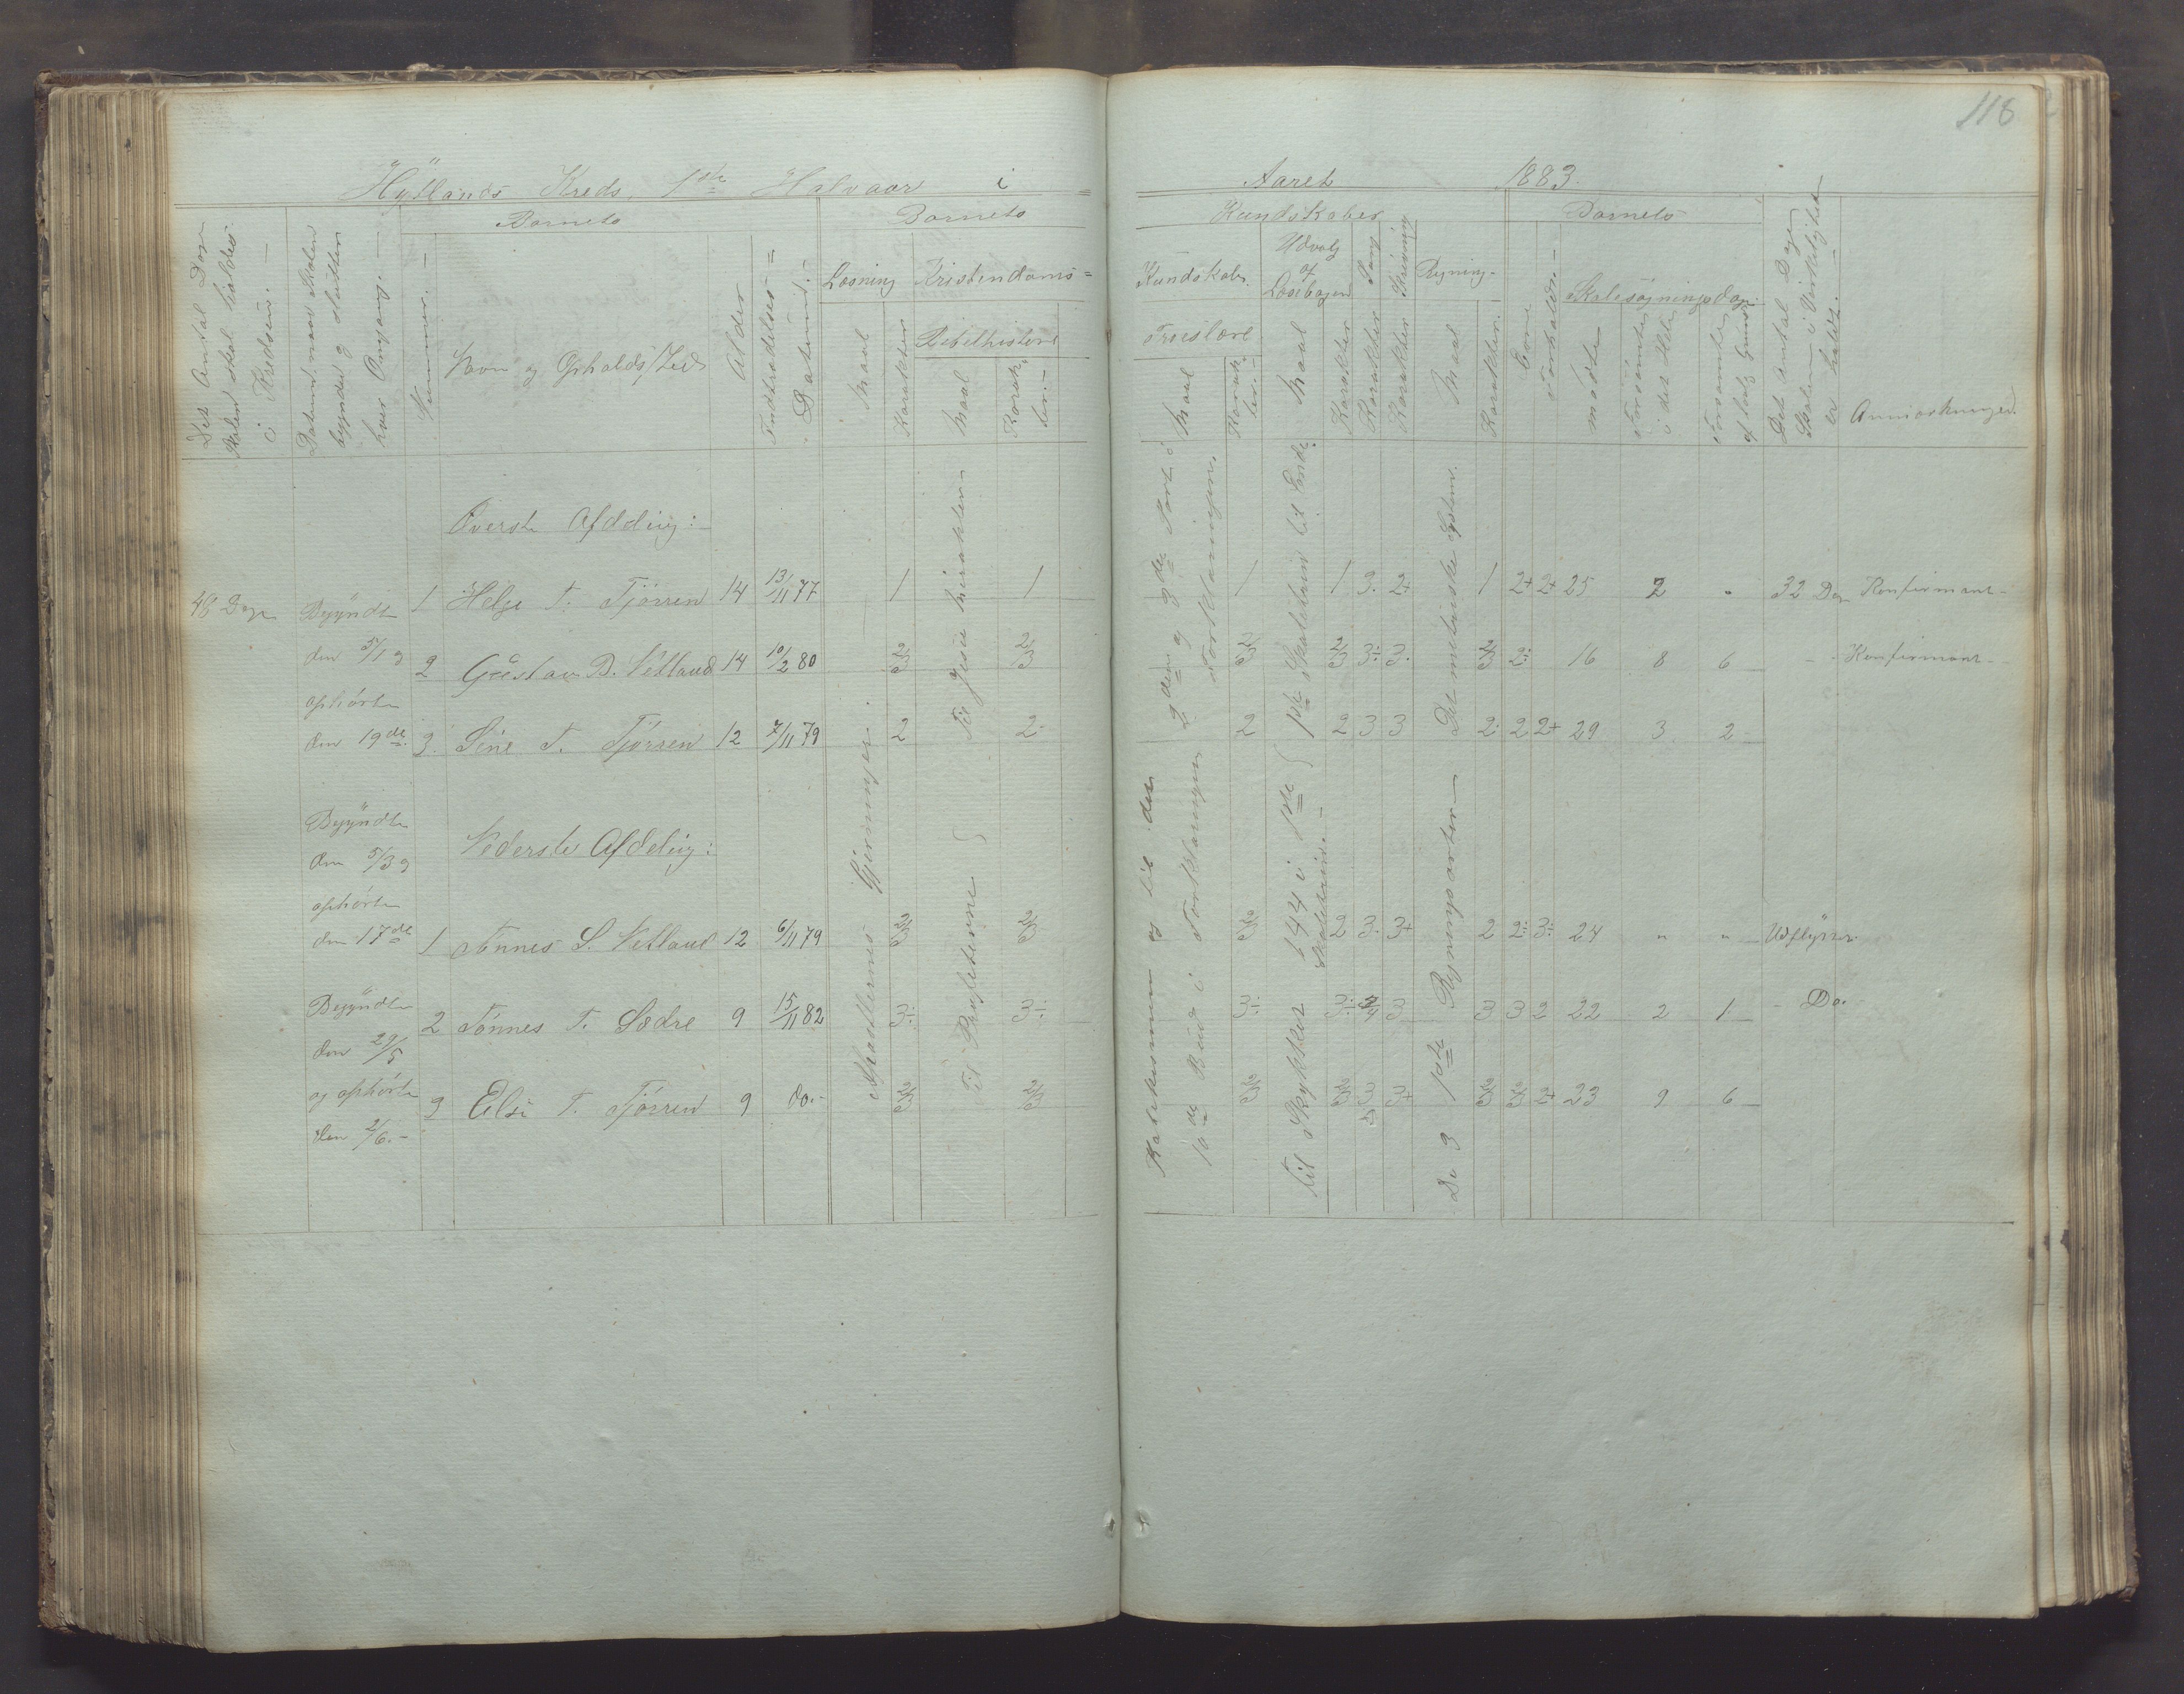 118
Hÿllands Kreds, 1ste Halvaar i
Aaret 1883.
Det Antal Dage
Skolen skal holdes
i Kredsen. —
Datum, naar Skolen
begyndte og sluttede
hver Omgang. —
Barnets
Nummer. —
Navn og Opholds/Sted
Alder
Indtrædelses =
Datum. —
Barnets
Læsning
Maal
Karakter
Kristendoms =
Bibelhistorie
Maal
Karak-
ter. —
Kundskaber
Kundskaber.
Troeslære
Maal
Karak-
ter. —
Udvalg
af
Læsebogen
Maal
Karakter
Sang
Karakter
Skrivning
Karakter
Regning.
Maal
Karakter.
Barnets
Evne
Forholde. —
Skolesøgningsdage.
mødte
Forsømte
i det Hele
Forsømte
af lovl. Grund
Det Antal Dage
Skolen i Virkelighed
er holdt. —
Anmærkninger.
Øverste Afdeling:
48 Dage
Begÿndte
den 5/1 og
ophørte
den 19de.
1 Helge T. Tjørren 14 13/11 77 1 1 1 1 3. 2+ 1 2+ 2+ 25 2 " 32 Dage Konfirmant
2 Gustav B. Netland 14 10/2 80 2/3 2/3 2/3 2/3 3÷ 3. 2/3 2÷ 16 8 6 Konfirmant
3. Sine T. Tjørren 12 7/11 79 2 2 2 2 3 3 2 2 2+ 29 3 2
Begÿndte
den 5/3 og
ophørte
den 17de
Nederste Afdeling:
1 Tønnes S. Netland 12 6/11 79 2/3 2/3 2/3 2 3. 3+ 2 2÷ 3÷ 24 " " Udflÿtter.
Begÿndte
den 29/5
og ophørte
den 2/6. —
2 Tønnes T. Sædre 9 15/11 82 3÷ 3÷ 3÷ 3÷ 3/4 3 3 3 2 22 2 1 Do.
3 Elsi T. Tjørren 9 do. 2/3 2/3 2/3 2/3 3 3+ 2/3 2/3 2+ 23 9 6
Apostlernes Gjerninger.
Til Profeterne }
Til Jesu Mirakler
Katekismen og til det
10de Bud i Forklaringen
2den og 3die Part i
Forklaringen.
Til Stykket 144 i 1ste
Skoletrin. —
1ste Skoletrin til Ende
De 3 1ste Regningsarter
Det metriske System.